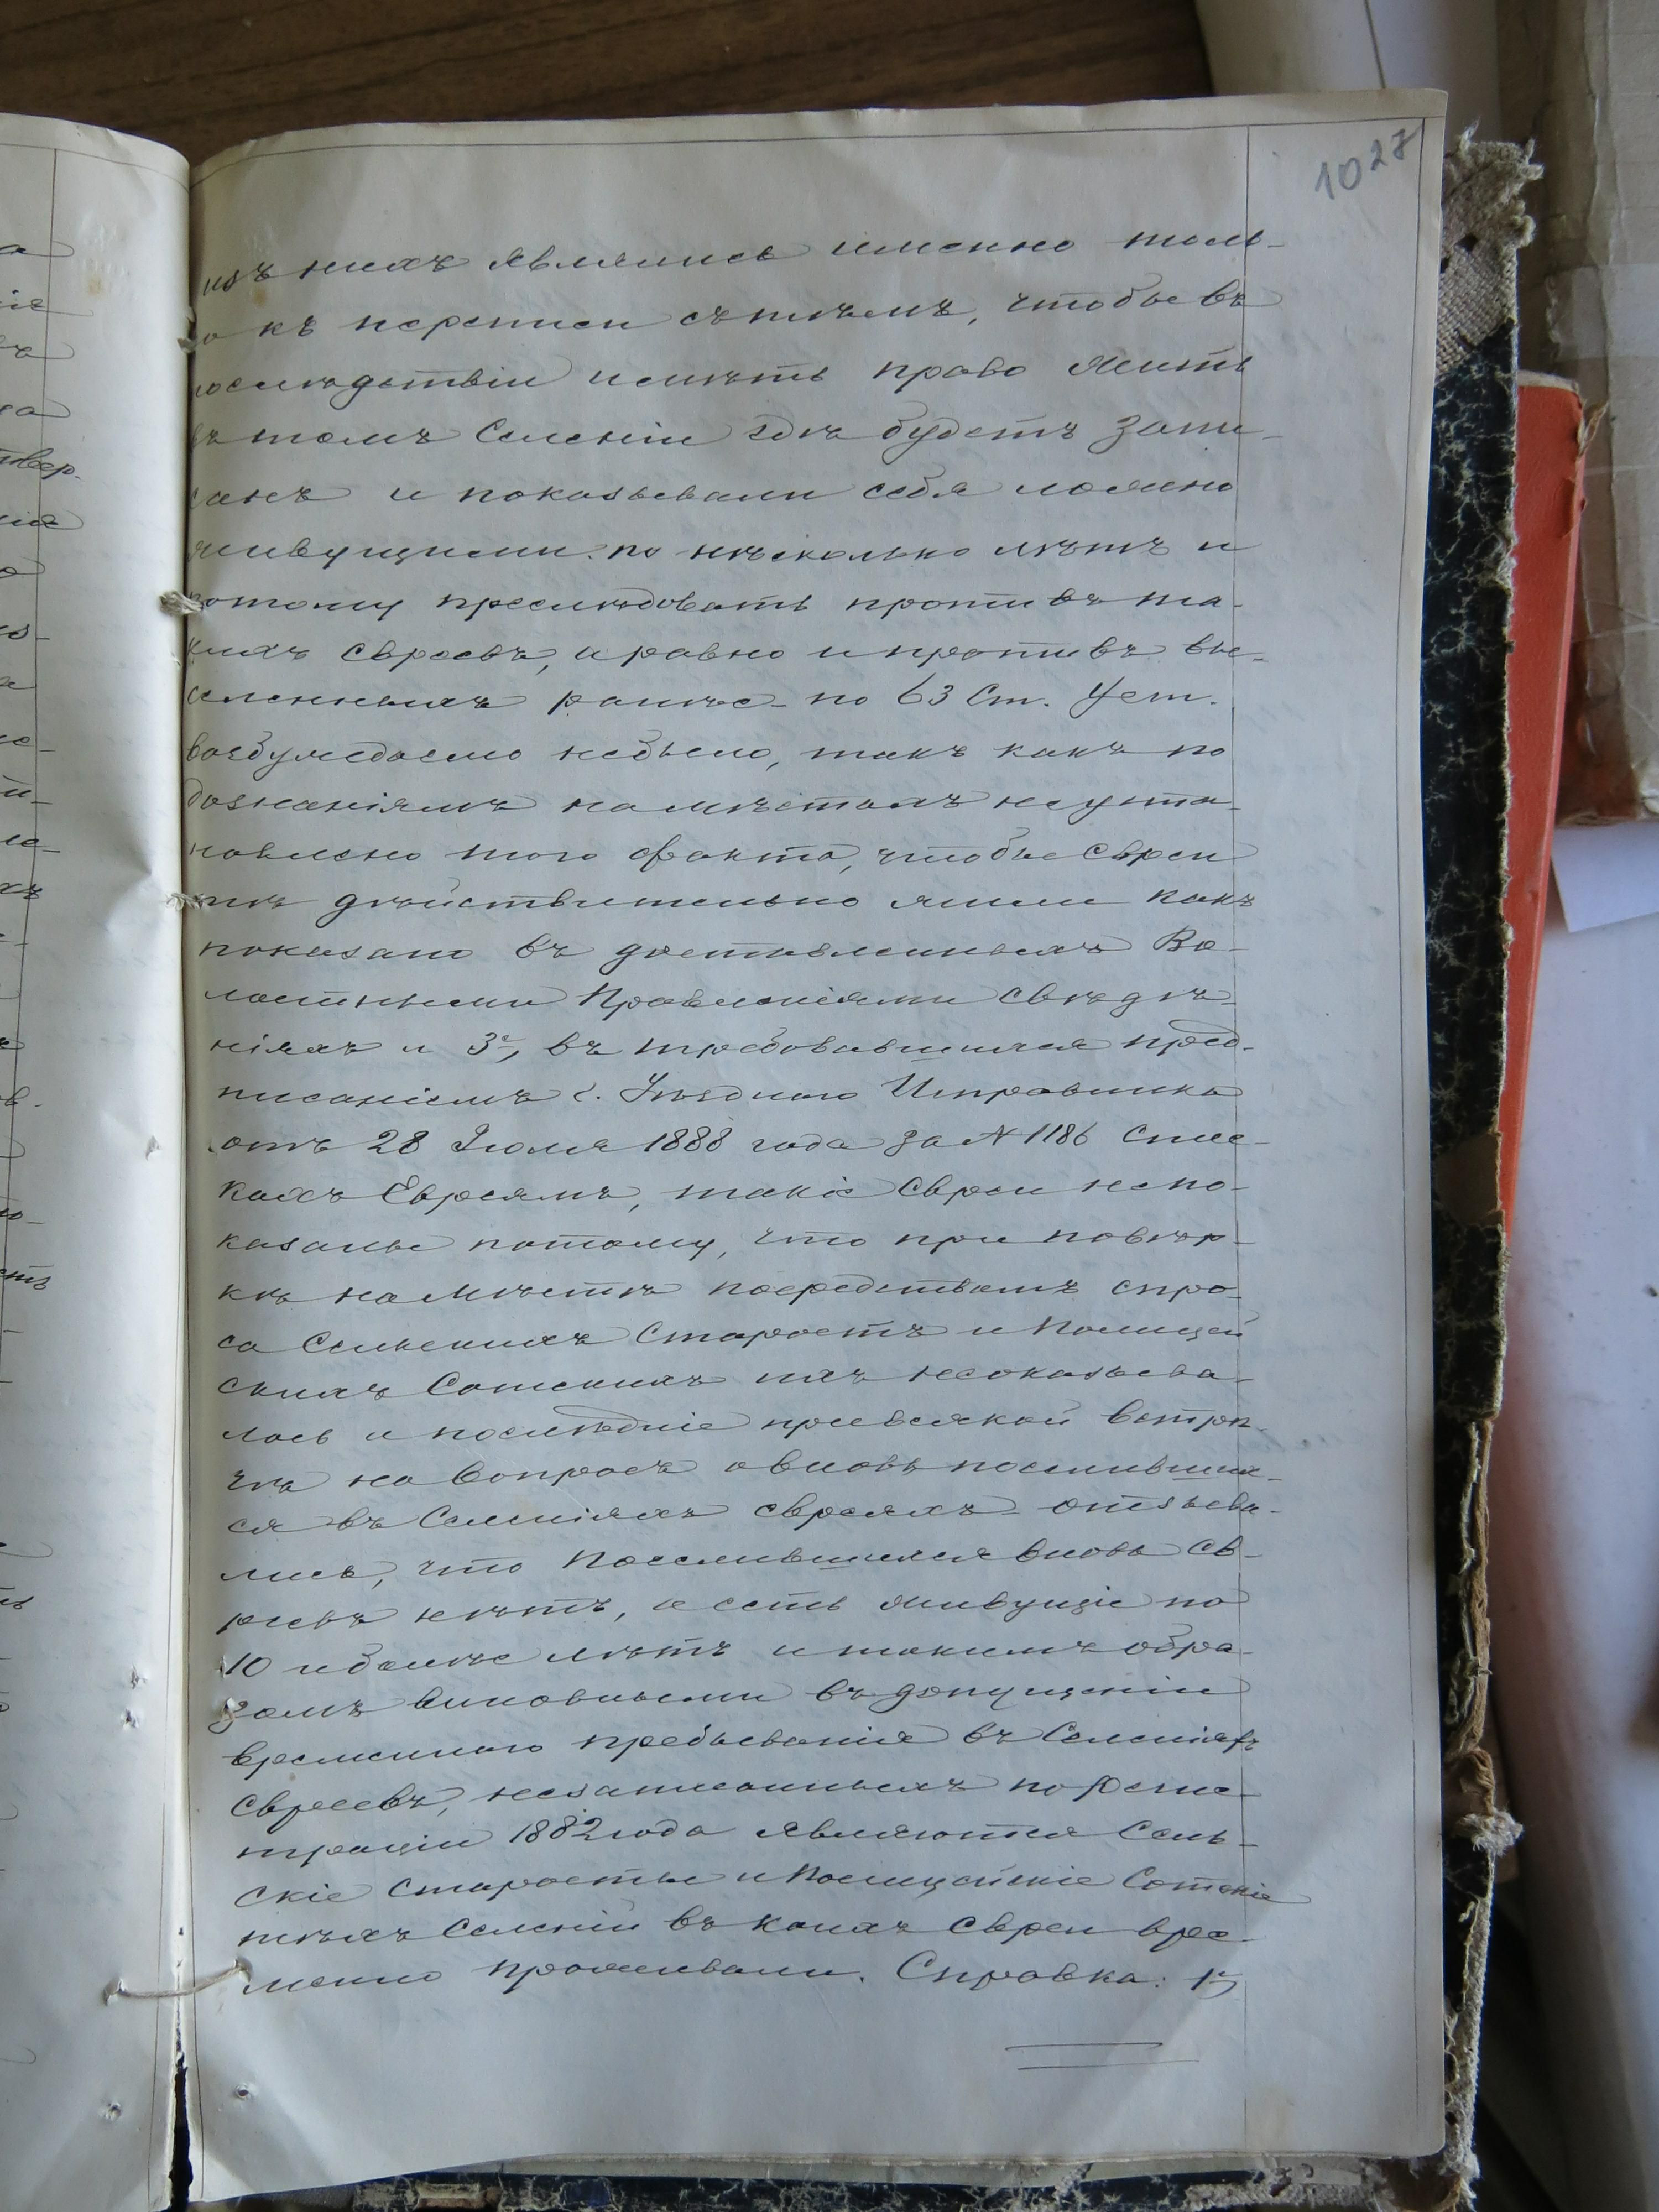 1027
изъ нихъ являлись именно толь-
о къ переписи съ тѣмъ, чтобы въ
послѣдствіи имѣть право жить
въ томъ Селеніи гдѣ будетъ запи-
санъ и показывали себя ложно
живущими по нѣсколько лѣтъ и
потому преслѣдовать противъ та-
кихъ евреевъ, а равно и противъ вы-
селенныхъ ранѣе по 63 Ст. Уст.
возбуждаемо небыло, такъ какъ по
дознаніямъ на мѣстахъ неуста-
новлено того факта, чтобы евреи
тѣ дѣйствительно жили какъ
показано въ доставленныхъ Во-
лостными Правленіями свѣдѣ-
ніяхъ и 3е, въ требовавшихся пред-
писаніемъ г. Уѣзднаго Исправника
отъ 28 Іюля 1888 года за № 1186 Спис-
кахъ Евреямъ, такіе евреи непо-
казаны потому, что при повѣр-
кѣ на мѣстѣ посредствомъ спро-
са Сельскихъ Старостъ и Полицей
скихъ Сотскихъ ихъ неоказыва-
лось и послѣдніе привсякой встрѣ-
чѣ на вопросъ о вновь поселивших-
ся въ Селеніяхъ евреяхъ отзыва-
лись, что поселившихся вновь ев-
реевъ нѣтъ, а есть живущіе по
10 и болѣе лѣтъ и такимъ обра-
зомъ виновными въ допущеніи
временнаго пребыванія въ Селеніяхъ
евреевъ, незаписанныхъ по Реги-
страціи 1882 года являются Сель-
скіе Старосты и Полицейскіе Сотскіе
тѣхъ Селеній въ коихъ евреи вре-
менно проживали. Справка: 1е,